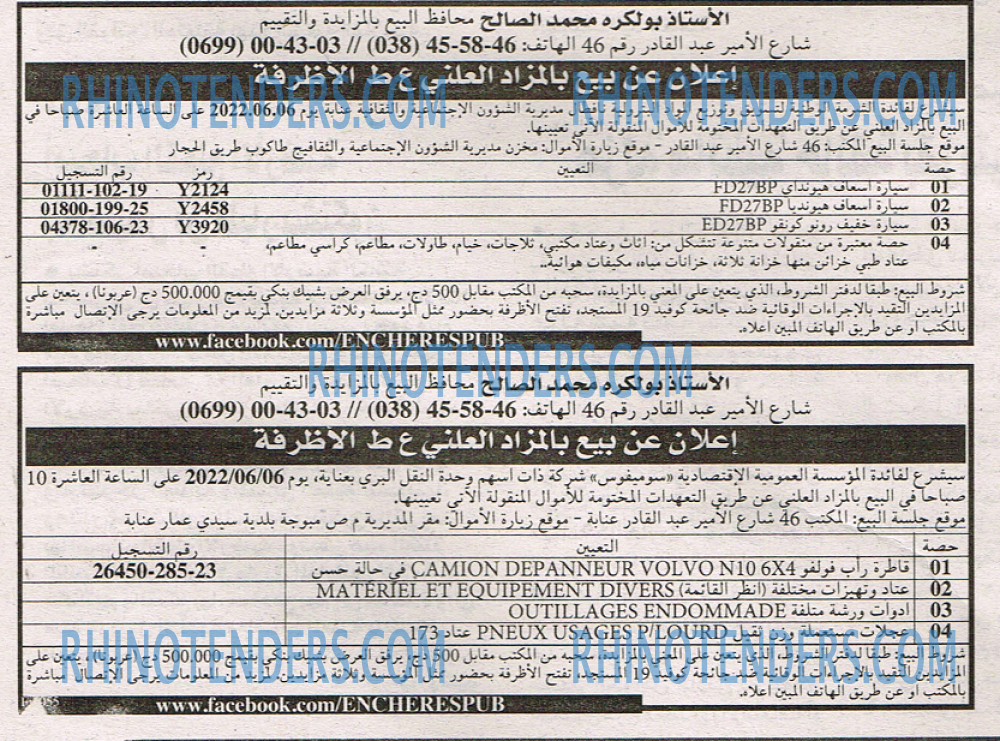 الأستاذ بولكره محمد الصالح محافظ البيع بالمزايدة والتقييم
شارع الأمير عبد القادر رقم 46 الهاتف: 46-58-45 (038) // 03-43-00 (0699)
إعلان عن بيع بالمزاد العلني ع ط الأظرفة
RHINOTENDERS.COM RHINOTENDERS.COM
لفائدة مديرية الشؤون الإجتماعية والثقافية عنابة يوم 2022.06.06 على الساعة العاشرة صباحا في
البيع بالمزاد العلني عن طريق التعهدات المختومة للأموال المنقولة الآتي تعيينها.
موقع جلسة البيع المكتب: 46 شارع الأمير عبد القادر - موقع زيارة الأموال: مخزن مديرية الشؤون الإجتماعية والثقافيج طاكوب طريق الحجار
حصة التعيين رمز رقم التسجيل
01 سيارة اسعاف هيونداي FD27BP Y2124 01111-102-19
02 سيارة اسعاف هيونديا FD27BP Y2458 01800-199-25
03 سيارة خفيف رونو كونقو ED27BP Y3920 04378-106-23
04 حصة معتبرة من منقولات متنوعة تتشكل من: اثاث وعتاد مكتبي، ثلاجات، خيام، طاولات، مطاعم، كراسي مطاعم، - -
عتاد طبي خزائن منها خزانة ثلاثة، خزانات مياه، مكيفات هوائية..
شروط البيع: طبقا لدفتر الشروط، الذي يتعين على المعني بالمزايدة، سحبه من المكتب مقابل 500 دج، يرفق العرض بشيك بنكي بقيمج 500.000 دج (عربونا) ، يتعين على
المزايدين التقيد بالإجراءات الوقائية ضد جائحة كوفيد 19 المستجد، تفتح الأظرفة بحضور ممثل المؤسسة وثلاثة مزايدين. لمزيد من المعلومات يرجى الإتصال مباشرة
بالمكتب او عن طريق الهاتف المبين اعلاه.
www.facebook.com/ENCHERESPUB
RHINOTENDERS.COM
الأستاذ بولكره محمد الصالح محافظ البيع بالمزايدة والتقييم
شارع الأمير عبد القادر رقم 46 الهاتف: 46-58-45 (038) // 03-43-00 (0699)
إعلان عن بيع بالمزاد العلني ع ط الأظرفة
سيشرع لفائدة المؤسسة العمومية الإقتصادية «سوميفوس» شركة ذات اسهم وحدة النقل البري بعناية، يوم 2022/06/06 على الساعة العاشرة 10
صباحا في البيع بالمزاد العلني عن طريق التعهدات المختومة للأموال المنقولة الآتي تعيينها.
موقع جلسة البيع: المكتب 46 شارع الأمير عبد القادر عنابة - موقع زيارة الأموال: مقر المديرية م ص مبوجة بلدية سيدي عمار عنابة
حصة التعيين رقم التسجيل
01 قاطرة رأب فولفو CAMION DEPANNEUR VOLVO N10 6X4 في حالة حسن 26450-285-23
02 عتاد وتهيزات مختلفة (انظر القائمة) MATÉRIEL ET EQUIPEMENT DIVERS
03 ادوات ورشة متلفة OUTILLAGES ENDOMMADE
04 عجلات مستعملة وزن ثقيل PNEUX USAGES P/LOURD عتاد 173
RHINOTENDERS.COM RHINOTENDERS.COM
شروط البيع: طبقا لدفتر الشروط، الذي يتعين على المعني بالمزايدة، سحبه من المكتب مقابل 500 دج، يرفق العرض بشيك بنكي بقيمج 500.000 دج (عربونا)، يتعين على
المزايدين التقيد بالإجراءات الوقائية ضد جائحة كوفيد 19 المستجد، تفتح الأظرفة بحضور ممثل المؤسسة وثلاثة مزايدين. لمزيد من المعلومات يرجى الإتصال مباشرة
بالمكتب او عن طريق الهاتف المبين اعلاه.
www.facebook.com/ENCHERESPUB